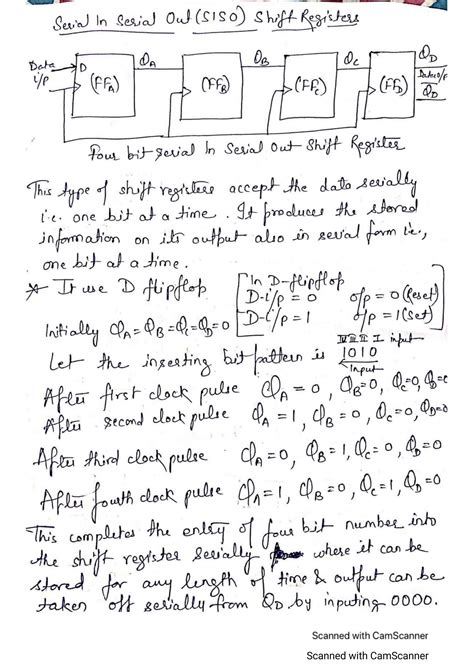 Serial In Serial Out (SISO) Shift Registers
Data i/p
D
QA
QB
QC
QD
(FFA)
(FFB)
(FFC)
(FFD)
Data o/p
QD
Four bit Serial In Serial Out Shift Register
This type of shift registers accept the data serially
i.e. one bit at a time. It produces the stored
information on its output also in serial form i.e.,
one bit at a time.
* It use D flipflop
[In D-flipflop
D-i/p = 0 o/p = 0 (Reset)
D-i/p = 1 o/p = 1 (Set)]
Initially QA = QB = QC = QD = 0
IV III II I input
Let the inserting bit pattern is 1010
Input
After first clock pulse QA = 0, QB = 0, QC = 0, QD = 0
After second clock pulse QA = 1, QB = 0, QC = 0, QD = 0
After third clock pulse QA = 0, QB = 1, QC = 0, QD = 0
After fouth clock pulse QA = 1, QB = 0, QC = 1, QD = 0
This completes the entry of four bit number into
the shift register serially where it can be
stored for any length of time & output can be
taken off serially from QD by inputing 0000.
Scanned with CamScanner
Scanned with CamScanner